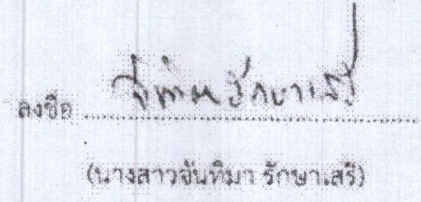 ลงชื่อ ........ รักษาเสรี
(นางสาวจันทิมา รักษาเสรี)